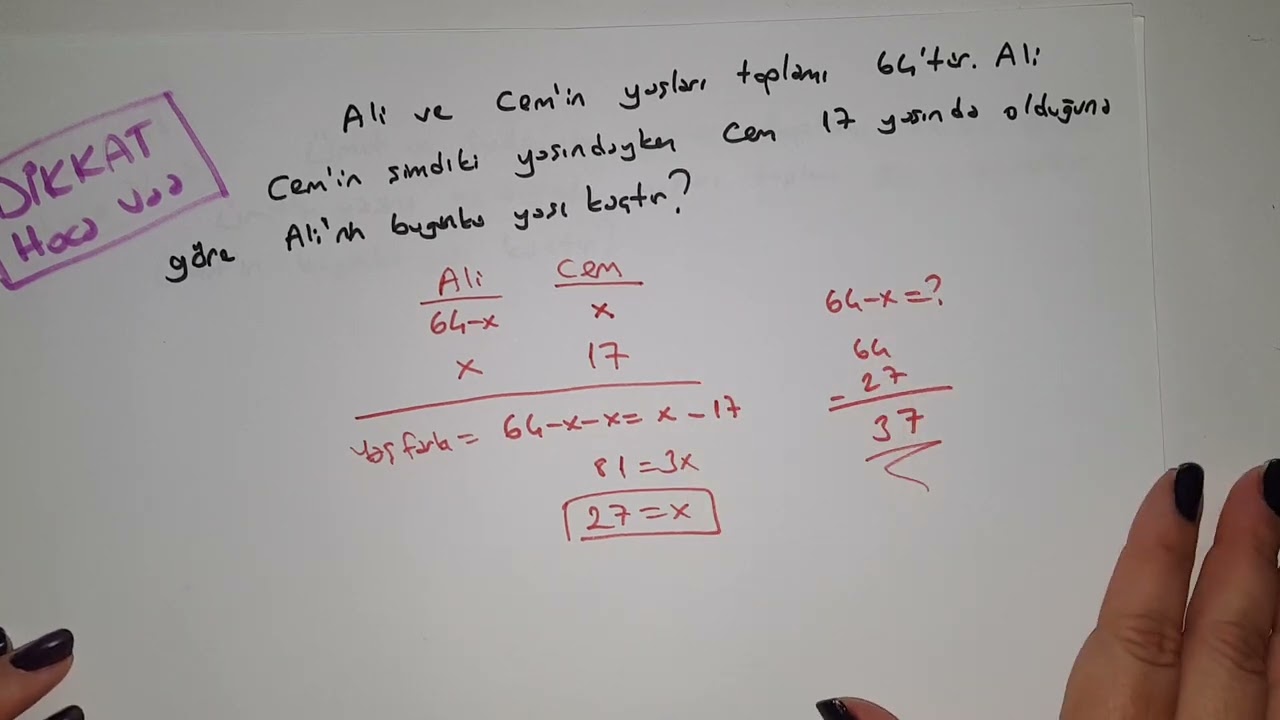 DİKKAT
Hoca Var
Ali ve Cem'in yaşları toplamı 64'tür. Ali
Cem'in şimdiki yaşındayken Cem 17 yaşında olduğuna
göre Ali'nin bugünkü yaşı kaçtır?
Ali Cem
64-x x
x 17
yaş farkı = 64-x-x= x-17
81=3x
27=x
64-x=?
64
- 27
37